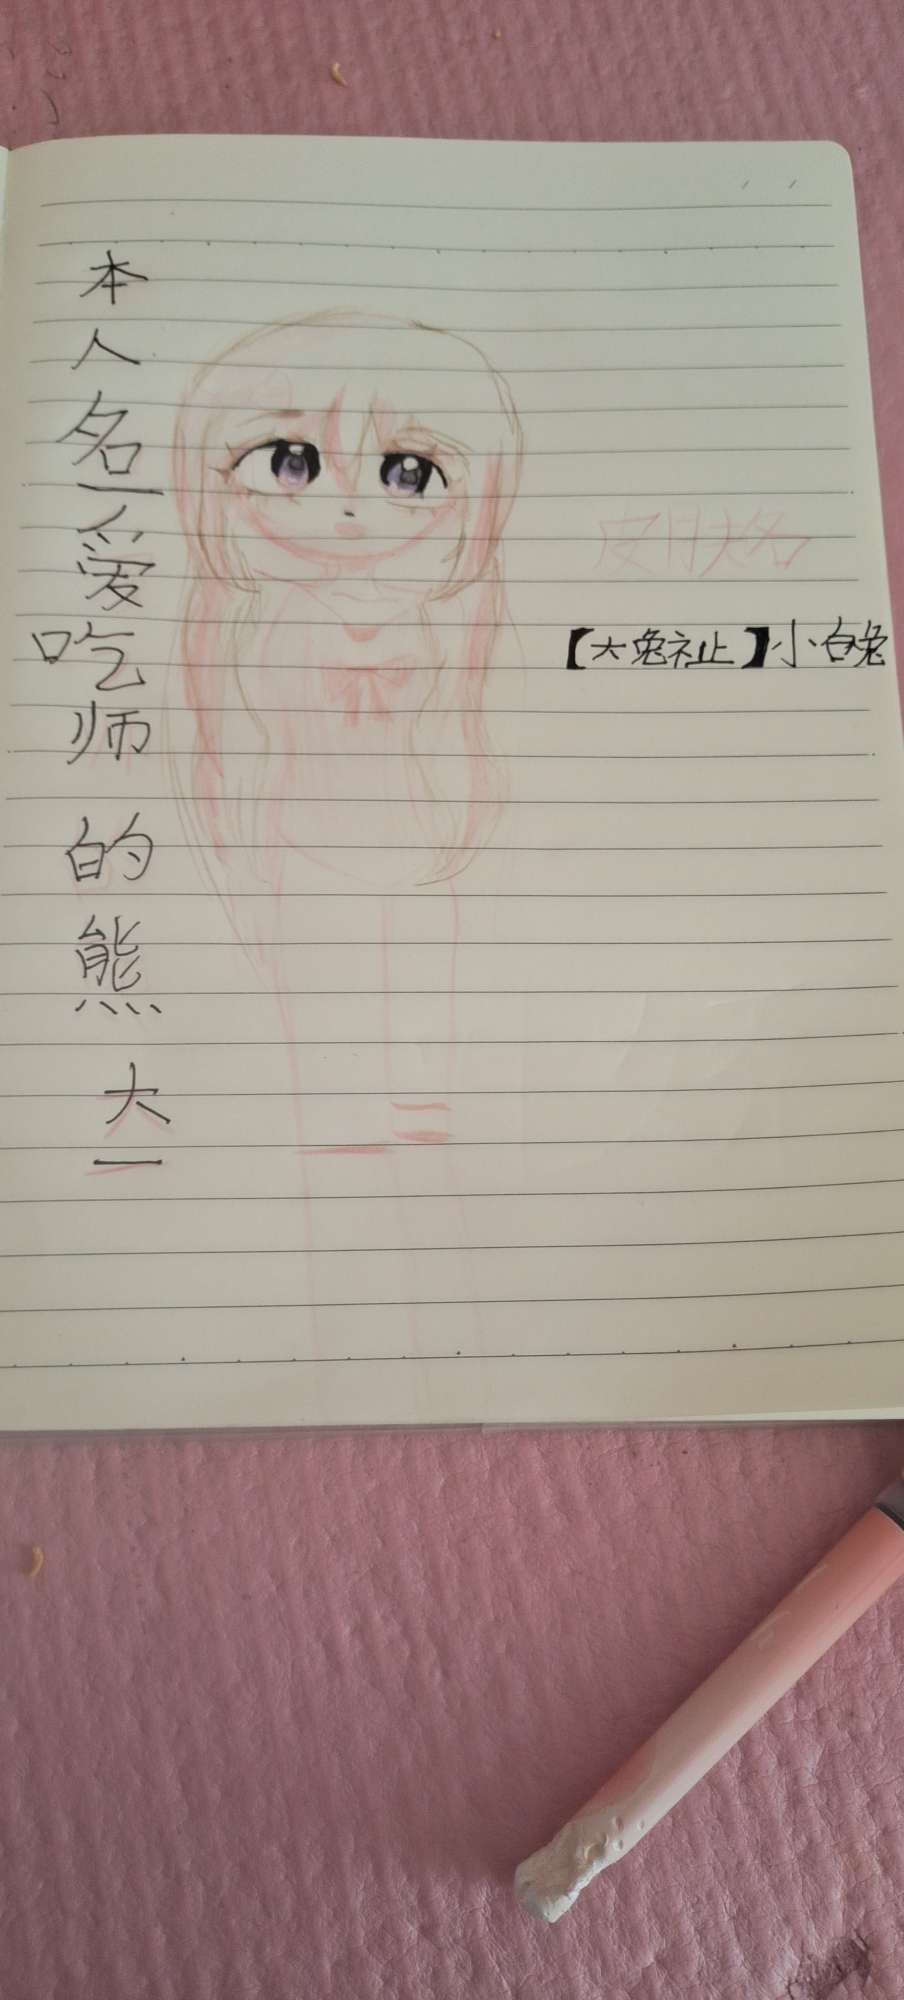 本人名一爱吃师的熊大一
皮肤名
【大兔祉】小白兔